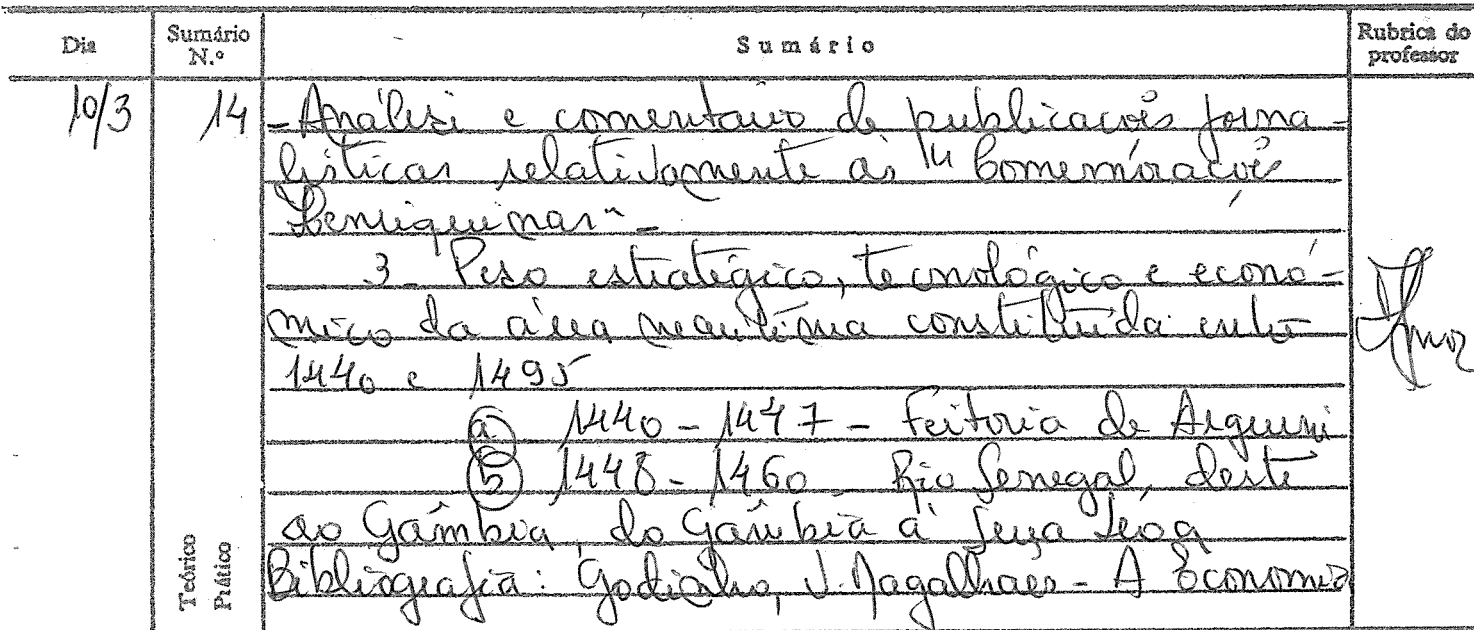 Dia Sumário N.º Sumário Rubrica do professor
10/3 14 - Análise e comentário de publicações jorna-
lísticas relativamente às "Comemorações
Henriquinas" -
3 - Peso estratégico, tecnológico e econó-
mico da área marítima constituída entre
1440 e 1495
a) 1440 - 1447 - Feitoria de Arguim
b) 1448 - 1460 - Rio Senegal, deste
ao Gâmbia, do Gâmbia à Serra Leoa
Bibliografia: Godinho, V. Magalhães - A Economia
Teórico
Prático